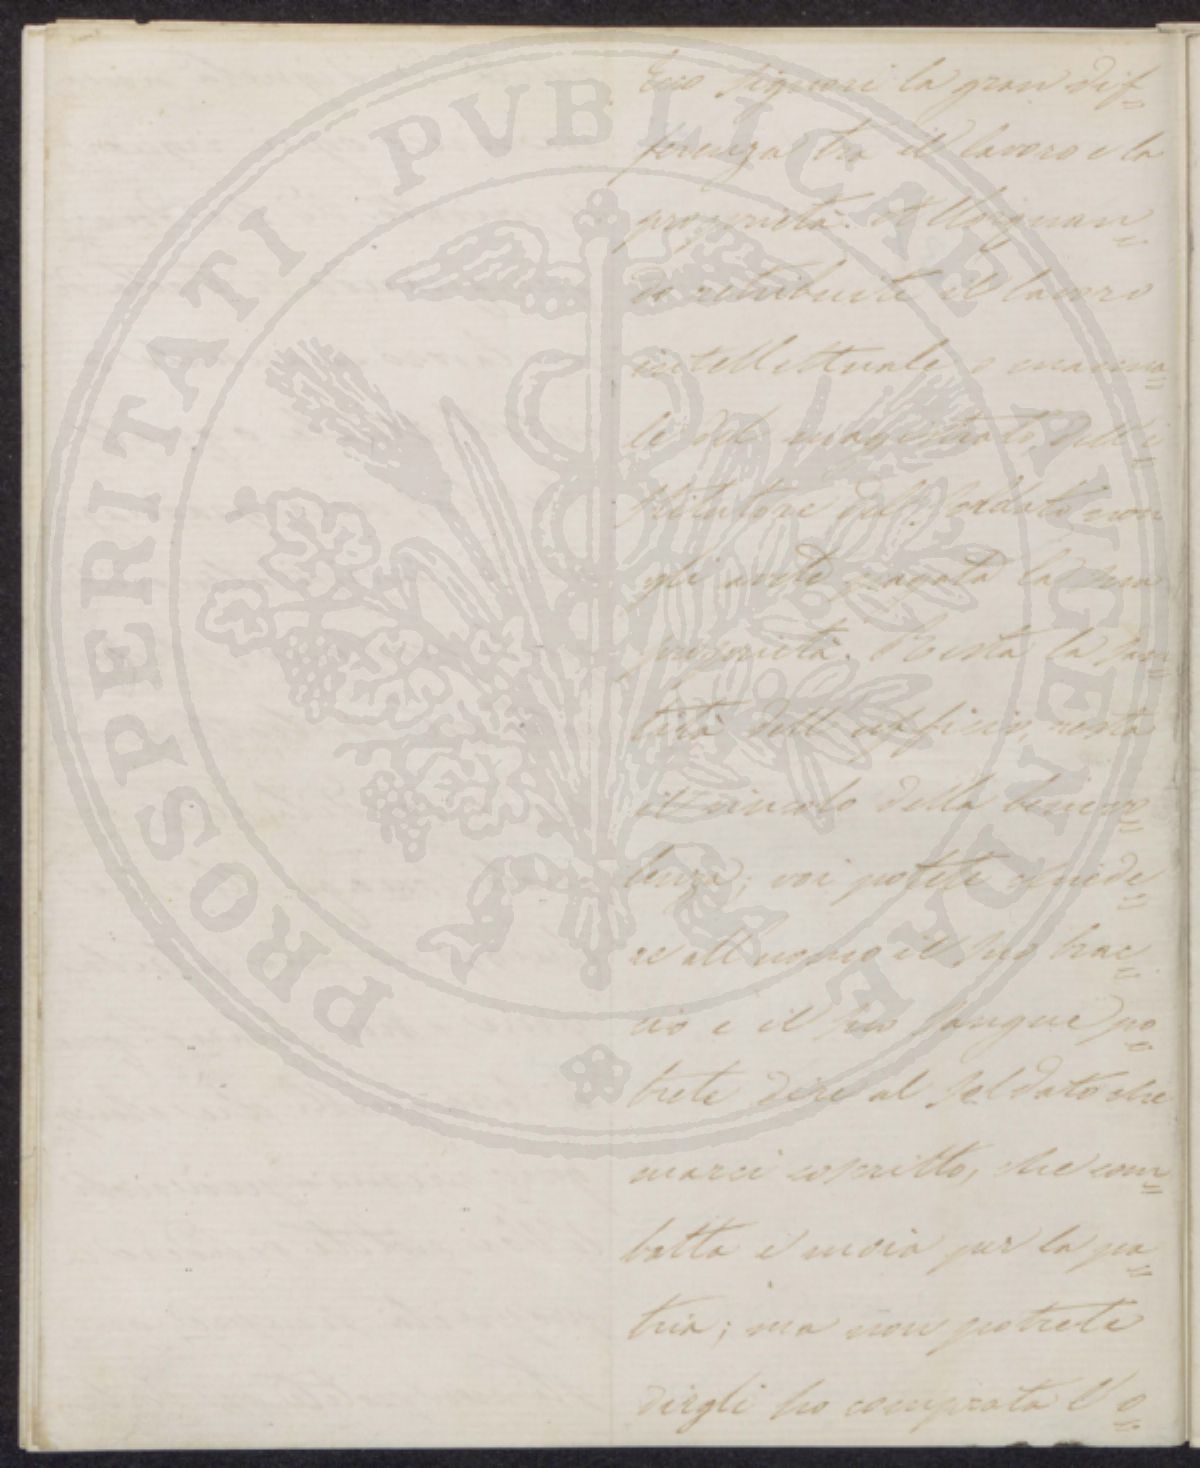 PROSPERITATI PUBLICAE AUGENDAE
Ecco Signori la gran dif=
ferenza tra il lavoro e la
proprietà. Allorquan=
do retribuite il lavoro
intellettuale o manua=
le del magistrato, dell'i=
stitutore del soldato non
gli avete pagata la sua
proprietà. Resta la san=
tità dell'ufficio, resta
il vincolo della benevo=
lenza; voi potete chiede=
re all'uomo il suo brac=
cio e il suo sangue po=
trete dire al soldato che
marci coscritto, che com=
batta e moia per la pa=
tria; ma non potrete
dirgli ho comprata l'o=